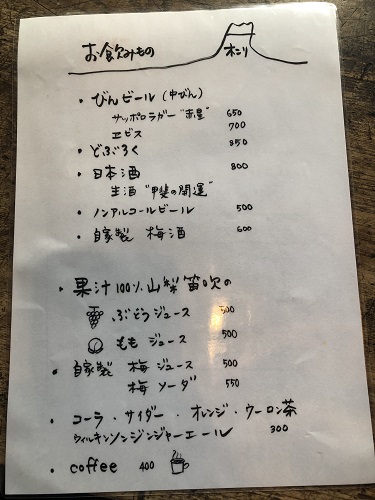 お飲みもの
木こり
・びんビール（中びん）
サッポロラガー"赤星" 650
ヱビス 700
・どぶろく 850
・日本酒 800
生酒"甲斐の開運"
・ノンアルコールビール 500
・自家製 梅酒 600
・果汁100% 山梨笛吹の
ぶどうジュース 500
ももジュース 500
・自家製 梅ジュース 500
梅ソーダ 550
・コーラ・サイダー・オレンジ・ウーロン茶
ウィルキンソンジンジャーエール 300
・coffee 400